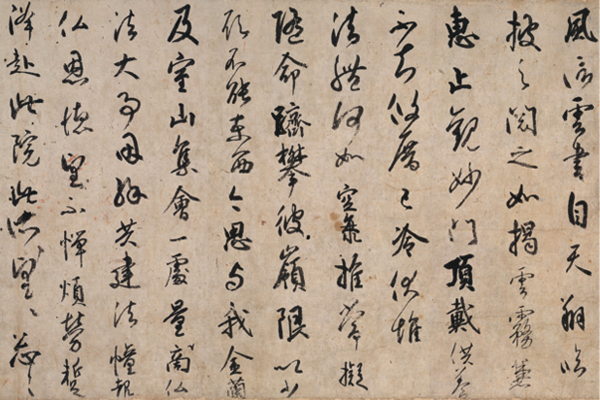 風信雲書自天翔臨
披之閲之如掲雲霧兼
恵止観妙門頂戴供養
不知攸厝已冷伏惟
法體何如空海推常擬
随命躋攀彼嶺限以少
願不能東西今思与我金蘭
及室山集會一處量商仏
法大事因縁共建法幢報
仏恩徳望不憚煩労蹔
降赴此院此所望々忩々